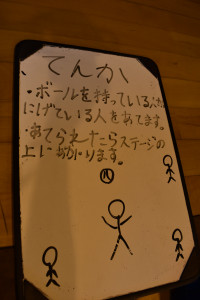 てんか
・ボールを持っている人が
にげている人をあてます。
・あてられたらステージの
上にあがります。